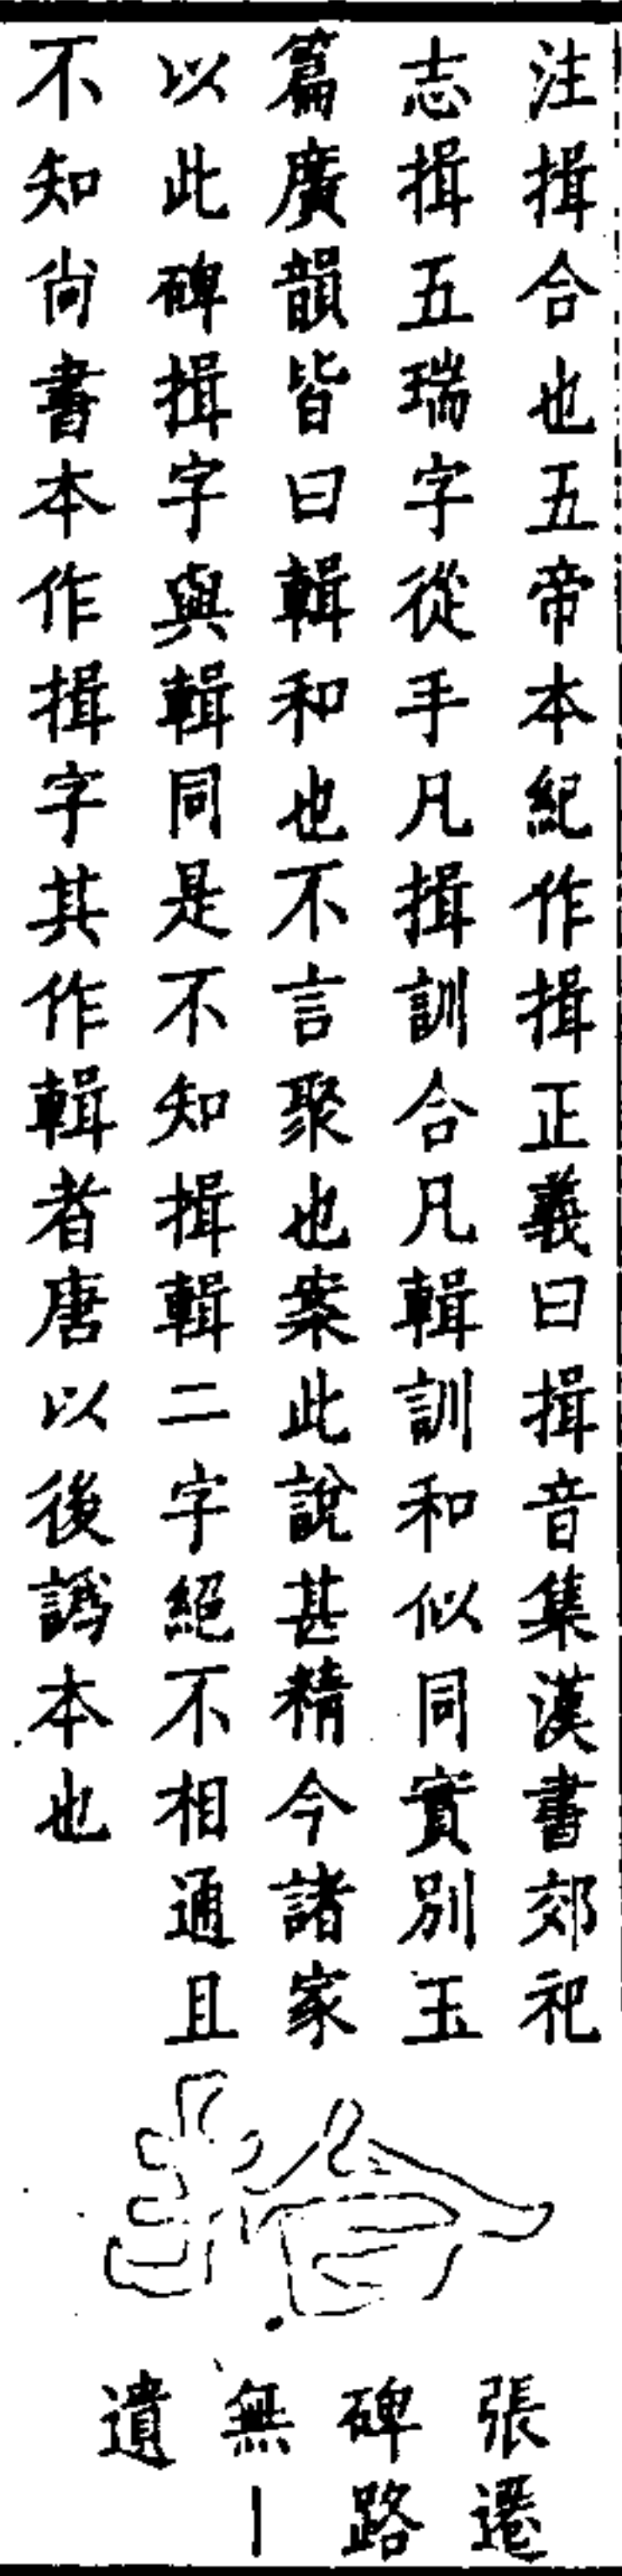 注揖合也五帝本紀作揖正義曰揖音集漢書郊祀
志揖五瑞字從手凡揖訓合凡輯訓和似同實別玉
篇廣韻皆曰輯和也不言聚也案此說甚精今諸家
以此碑揖字與輯同是不知揖輯二字絕不相通且
不知尚書本作揖字其作輯者唐以後譌本也
拾
張遷
碑路
無丨
遺